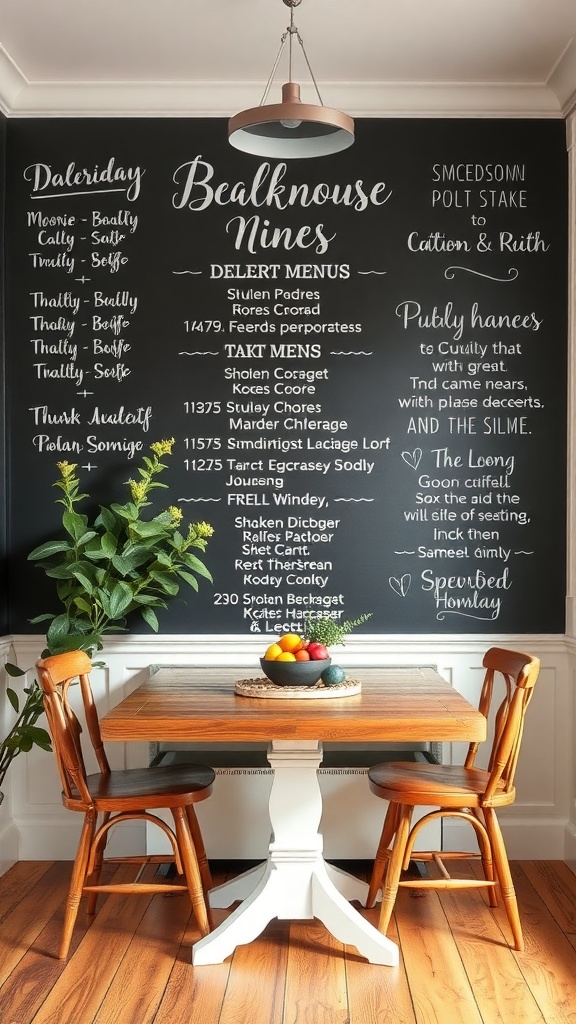 Dalericlay
Moorie - Boally
Cally - Satfe
Twully - Soffe
Thatly - Bully
Thaly - Boffe
Thatly - Bolfe
Tratlly - Solfe
Thurk Auulectf
Polan Somige
Bealknouse
Nines
DELERT MENUS
Stulen Podres
Rores Crorad
11479. Feerds perporatess
TAKT MENS
Sholen Coraget
Koces Coore
11375 Stuley Chores
Marder Chlerage
11575 Simdintigst Laciage Lorf
11275 Tarct Egcrasey Sodly
Joueeng
FRELL Windey,
Shaken Dicbger
Relfer Pactoer
Shet Cant.
Rert Thersrean
Kodry Conky
230 Srolan Beckaget
Kcries Harcaser
SMCEDSONN
POLT STAKE
to
Cattion & Ruith
Publy hances
to Cuully that
with great.
Tnd came nears,
with plase deccerts.
AND THE SILME.
The Loong
Goon cuifell.
Sox the aid the
will slle of seating,
Inck then
Sameel aimly
Specrbed
Homlay